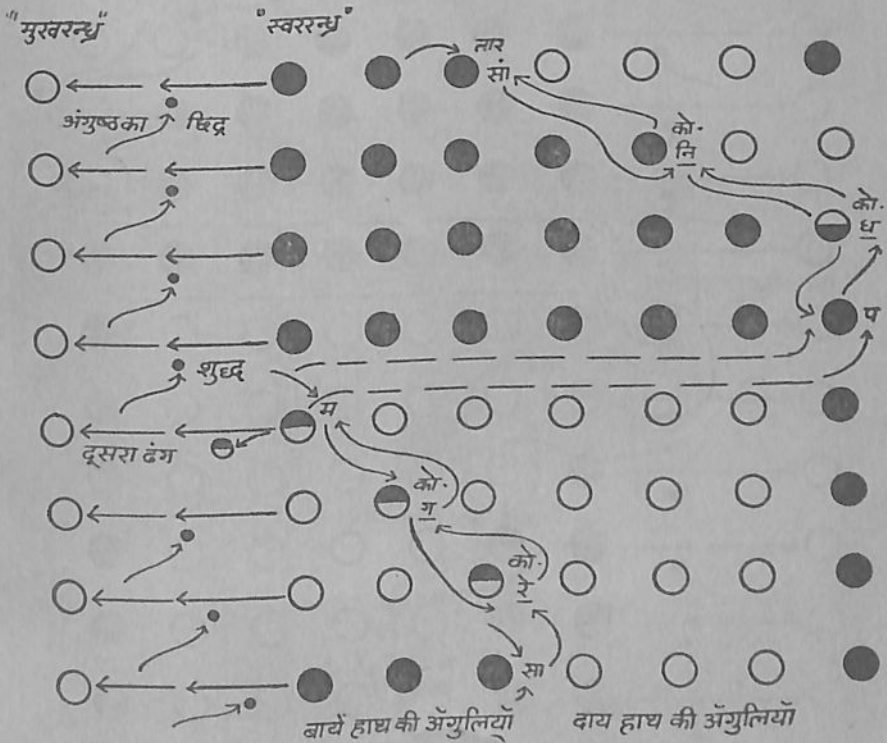 "मुखरन्ध्र" "स्वररन्ध्र"
तार
सां
अंगुष्ठका छिद्र
को.
नि
को.
ध
प
शुद्ध
म
दूसरा ढंग
को.
ग
को.
रे
सा
बायें हाथ की अँगुलियाँ दाय हाथ की अँगुलियाँ